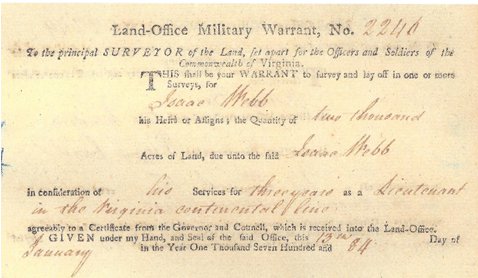 Land-Office Military Warrant, No. 2240
To the principal SURVEYOR of the Land, set apart for the Officers and Soldiers of the
Commonwealth of Virginia.
THIS shall be your WARRANT to survey and lay off in one or more
Surveys, for
Isaac Webb
his Heirs or Assigns; the Quantity of two thousand
Acres of Land, due unto the said Isaac Webb
in consideration of his Services for three years as a Lieutenant
in the Virginia continental line
agreeably to a Certificate from the Governor and Council, which is received into the Land-Office.
GIVEN under my Hand, and Seal of the said Office, this 13th Day of
January in the Year One Thousand Seven Hundred and 84.